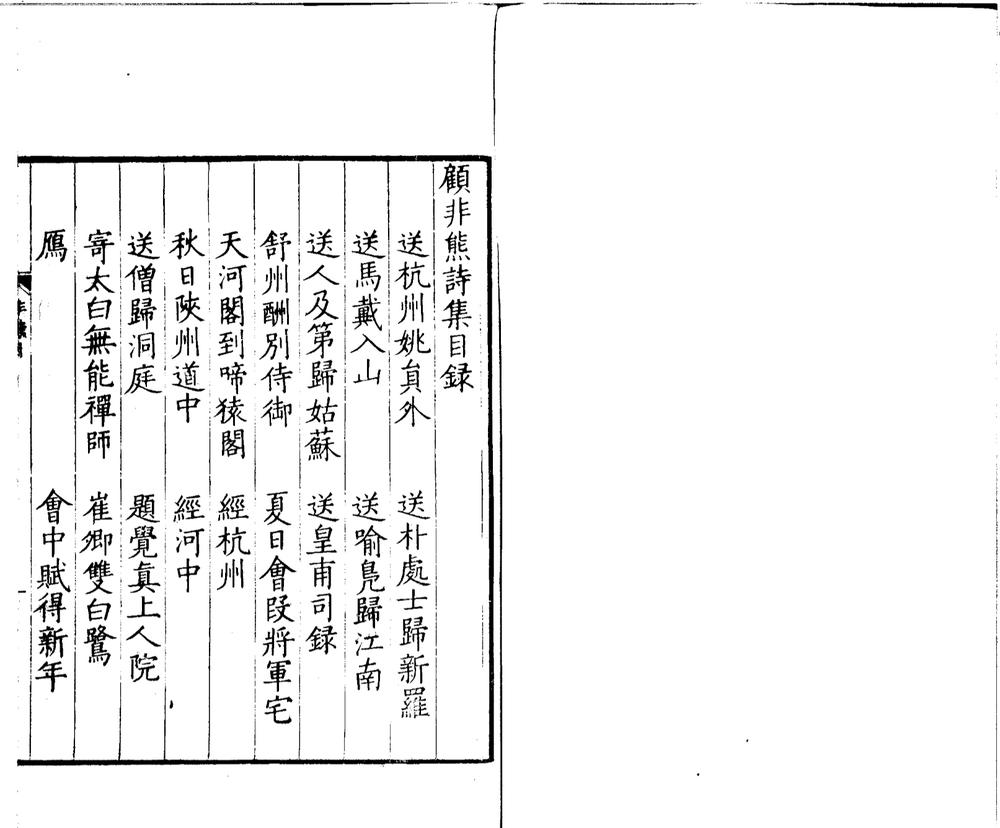 顧非熊詩集目録
送杭州姚貟外　送朴處士歸新羅
送馬戴入山　送喻鳧歸江南
送人及第歸姑蘇　送皇甫司録
舒州酬別侍御　夏日會段將軍宅
天河閣到啼猿閣　經杭州
秋日陝州道中　經河中
送僧歸洞庭　題覺眞上人院
寄太白無能禪師　崔卿雙白鷺
鴈　會中賦得新年